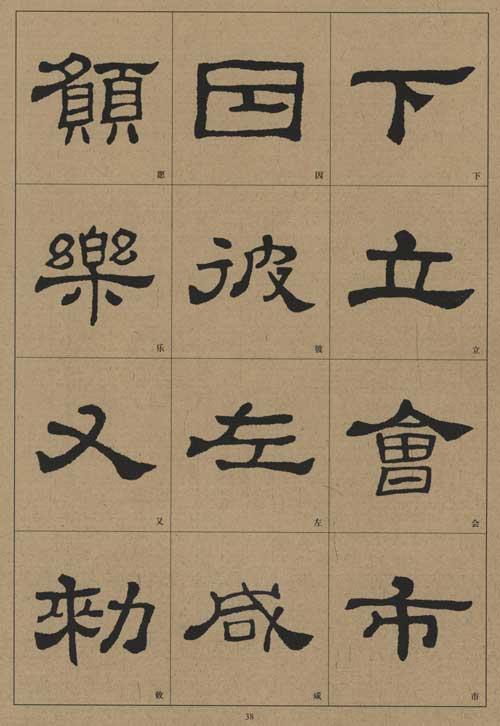 下立會市
下立会市
因彼左咸
因彼左咸
願樂又勑
愿乐又敕
38